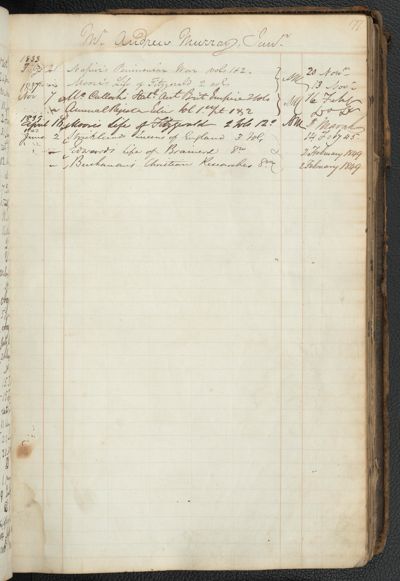 177
Mr. Andrew Murray, Junr.
1833
2 Napier's Peninsular War vols 1 & 2. 20 Novr.
1837 — Moore's Life of Fitzgerald 2 vols 13 Novr.
Nov 7 McCulloch's Statl. Act. Brit. Empire 2 Vols 16 Feby.
— Annual Register Vol 1 & 2 Do Do
1837
April 18 Moore's Life of Fitzgerald 2 Vols 12o March
June 2 Strickland Queens of England 3 Vols, 14 Feby 45
— Edwards Life of Brainerd 8vo 2 February 1849
— Buchanan's Christian Researches 8vo 2 February 1849